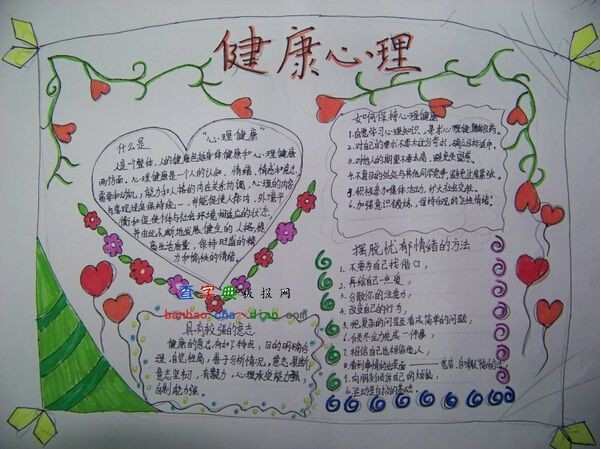 健康心理
什么是
“心理健康”
人是个整体，人的健康包括身体健康和心理健康
两方面。心理健康是一个人的认知、情绪、情感和意志
需要和动机，能力和人格的内在关系协调，心理的内容
与客观世界保持统一，并能促使人体内、外环境平
衡和促使个体与社会环境相适应的状态，
并由此不断地发展健全的人格，提
高生活质量，保持旺盛的精
力和愉快的情绪。
如何保持心理健康
1.自觉学习心理知识，
2.对自己的要求不要太过分苛求，
3.对他人的期望不要太高，避免失望感。
4.不盲目的处处与其他同学竞争，避免过度紧张。
5.积极参加集体活动，扩大社会交往。
6.加强意识锻炼，保持乐观的
摆脱忧郁情绪的方法
1.不要为自己找借口。
2.再给自己一点爱。
3.分散你的注意力。
4.改变自己的行为。
5.把复杂的问题看成简单的问题。
6.做一件事。
7.相信自己也相信他人。
8.看到事情的光明面
9.向朋友倾诉自己的烦恼。
查字典手抄报网
hanbao.chazidian.com
具有较强的意志
健康的意志有如下特点，目的明确合
理，自觉性高，善于分析情况，意志果断
意志坚韧，有毅力，心理承受能力强，
自制能力强。